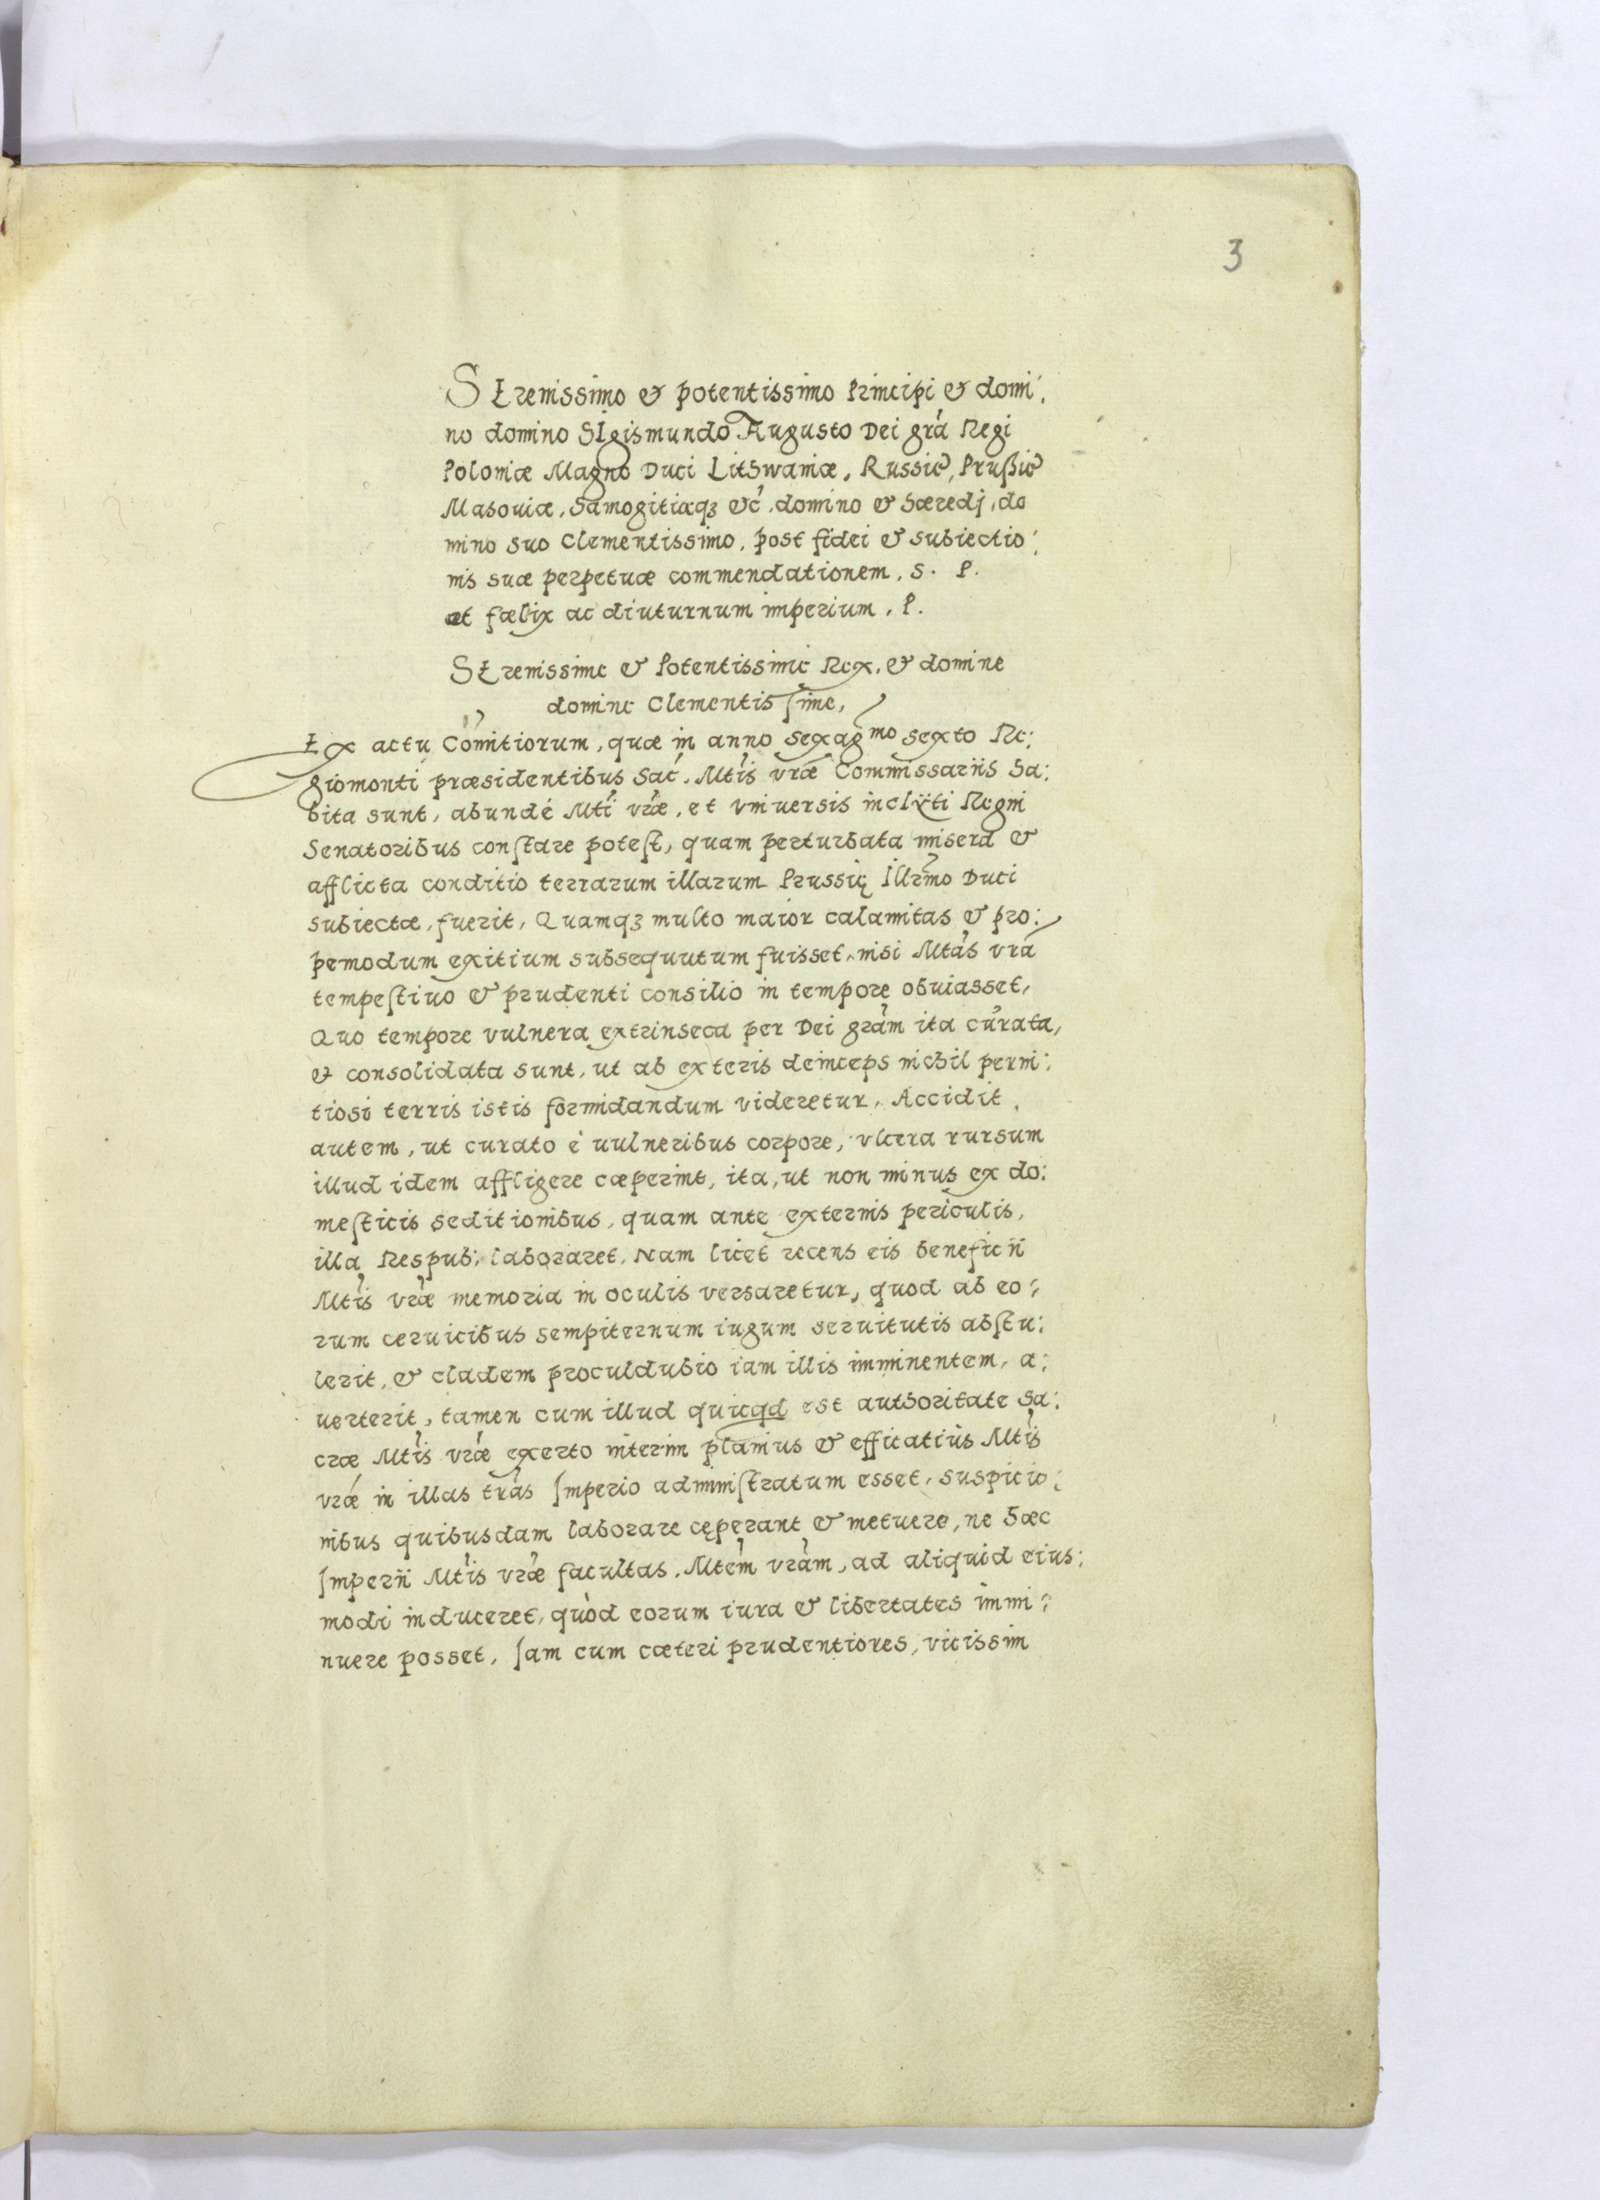 3
SErenissimo & potentissimo Principi & domi:
no domino SIgismundo Augusto Dei grã Regi
Poloniæ Magno Duci Lithwaniæ, Russie, Prußie
Masouiæ, Samogitiæqȝ &c̃, domino & hæredj, do
mino suo Clementissimo, post fidei & subiectio:
nis suæ perpetuæ commendationem, S. P.
et fælix ac diuturnum imperium, P.
SErenissime & Potentissime Rex, & domine
domine Clementisſime,
Ex actu Comitiorum, quæ in anno sexagmo sexto Re:
giomonti præsidentibus Sac̃. Mtis vræ Commissariis ha:
bita sunt, abundé Mti vræ, et vniuersis inclÿti Regni
Senatoribus conſtare poteſt, quam perturbata misera &
afflicta conditio terrarum illarum Prussię Illrmo Duci
subiectæ, fuerit, Quamqȝ multo maior calamitas & pro:
pemodum exitium subsequutum fuisset, nisi Mtas vrã
tempeſtiuo & prudenti consilio in tempore obuiasset,
Quo tempore vulnera extrinseca per Dei grãm ita curata,
& consolidata sunt, ut ab exteris deinceps nichil perni:
tiosi terris istis formidandum videretur, Accidit
autem, ut curato è uulneribus corpore, vlcera rursum
illud idem affligere cæperint, ita, ut non minus ex do:
meſticis seditionibus, quam ante externis periculis,
illa Respub: laboraret, Nam licet recens eis beneficii
Mtis vræ memoria in oculis versaretur, quod ab eo:
rum ceruicibus sempiternum iugum seruitutis abſtu:
lerit, & cladem proculdubio iam illis imminentem, a:
uerterit, tamen cum illud quicqd est authoritate Sa:
cræ Mtis vræ exerto interim planius & efficatiùs Mtis
vræ in illas trãs Imperio adminiſtratum esset, suspicio:
nibus quibusdam laborare cęperant & metuere, ne hæc
Imperii Mtis vræ facultas, Mtem vrãm, ad aliquid eius:
modi induceret, quòd eorum iura & libertates immi:
nuere posset, Iam cum cæteri prudentiores, vicissim